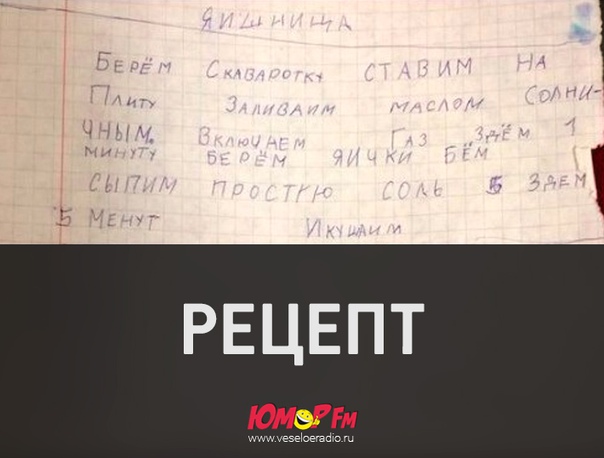 ЯИШНИЦА
БЕРЁМ СКАВАРОТКУ СТАВИМ НА
ПЛИТУ ЗАЛИВАИМ МАСЛОМ СОЛНИ-
ЧНЫМ. ВКЛЮЧАЕМ ГАЗ ЗДЁМ 1
МИНУТУ БЕРЁМ ЯИЧКИ БЁМ
СЫПИМ ПРОСТУЮ СОЛЬ ЗДЕМ
5 МЕНУТ ИКУШАИМ
РЕЦЕПТ
ЮМОР FM
www.veseloeradio.ru